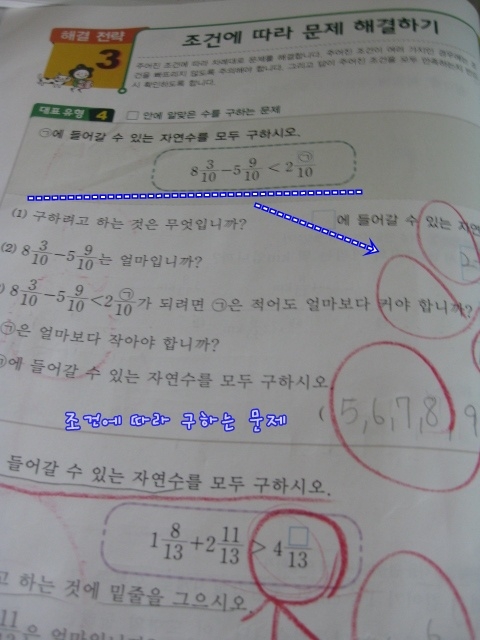 해결 전략
3
조건에 따라 문제 해결하기
주어진 조건에 따라 차례대로 문제를 해결합니다. 주어진 조건이 여러 가지인 경우에는
건을 빠트리지 않도록 주의해야 합니다. 그리고 답이 주어진 조건을 모두 만족하는지 반
시 확인하도록 합니다.
대표 유형 4 □ 안에 알맞은 수를 구하는 문제
㉠에 들어갈 수 있는 자연수를 모두 구하시오.
8 3/10 - 5 9/10 < 2 ㉠/10
(1) 구하려고 하는 것은 무엇입니까? □에 들어갈 수 있는 자연
(2) 8 3/10 - 5 9/10 는 얼마입니까?
) 8 3/10 - 5 9/10 < 2 ㉠/10 가 되려면 ㉠은 적어도 얼마보다 커야 합니까?
㉠은 얼마보다 작아야 합니까?
㉠에 들어갈 수 있는 자연수를 모두 구하시오.
( 5, 6, 7, 8, 9
조건에 따라 구하는 문제
들어갈 수 있는 자연수를 모두 구하시오.
1 8/13 + 2 11/13 > 4 □/13
고 하는 것에 밑줄을 그으시오.
11/13 은 얼마입니까?